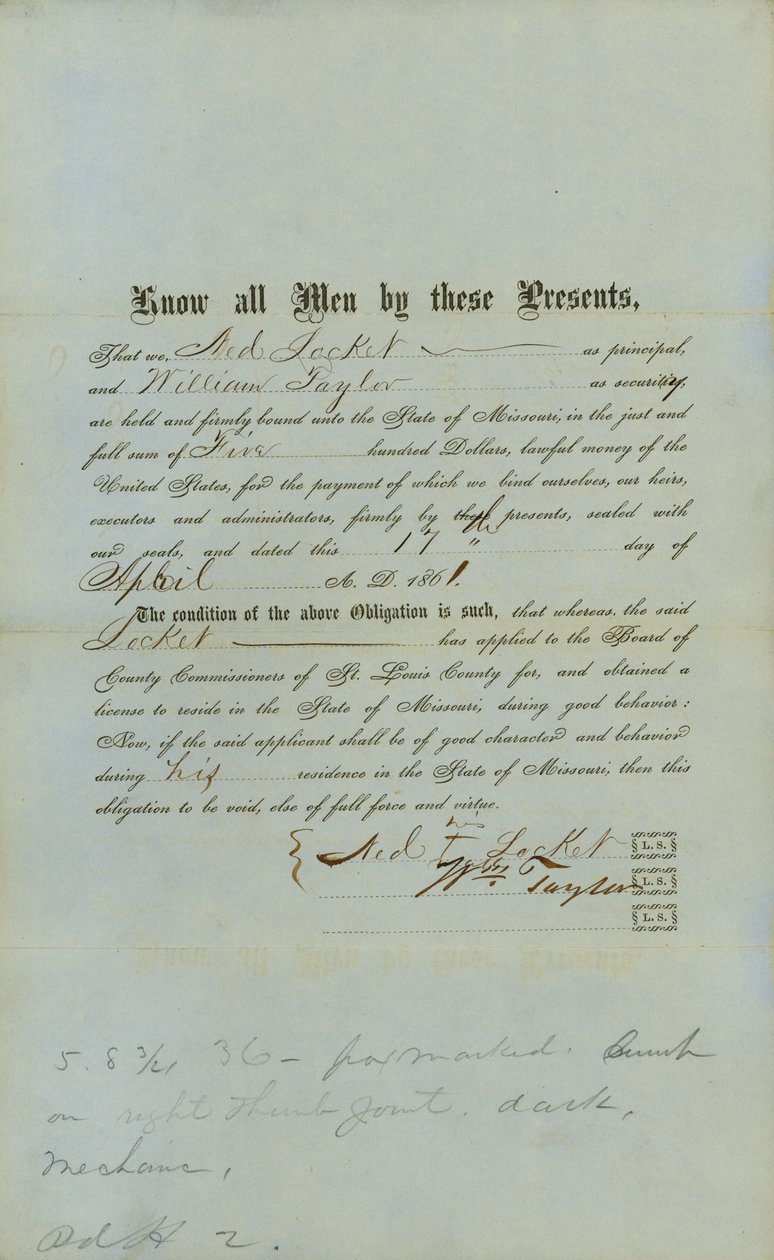 Know all Men by these Presents,
That we, Ned Locket as principal,
and William Taylor as security,
are held and firmly bound unto the State of Missouri, in the just and
full sum of Five hundred Dollars, lawful money of the
United States, for the payment of which we bind ourselves, our heirs,
executors and administrators, firmly by these presents, sealed with
our seals, and dated this 17 th day of
April A. D. 1861.
The condition of the above Obligation is such, that whereas, the said
Locket has applied to the Board of
County Commissioners of St. Louis County for, and obtained a
license to reside in the State of Missouri, during good behavior:
Now, if the said applicant shall be of good character and behavior
during his residence in the State of Missouri, then this
obligation to be void, else of full force and virtue.
his
Ned + Locket L. S.
Wm Taylor L. S.
L. S.
5. 8 3/4 36 - pox marked.
on right thumb joint. dark,
mechanic,
Pd 2.